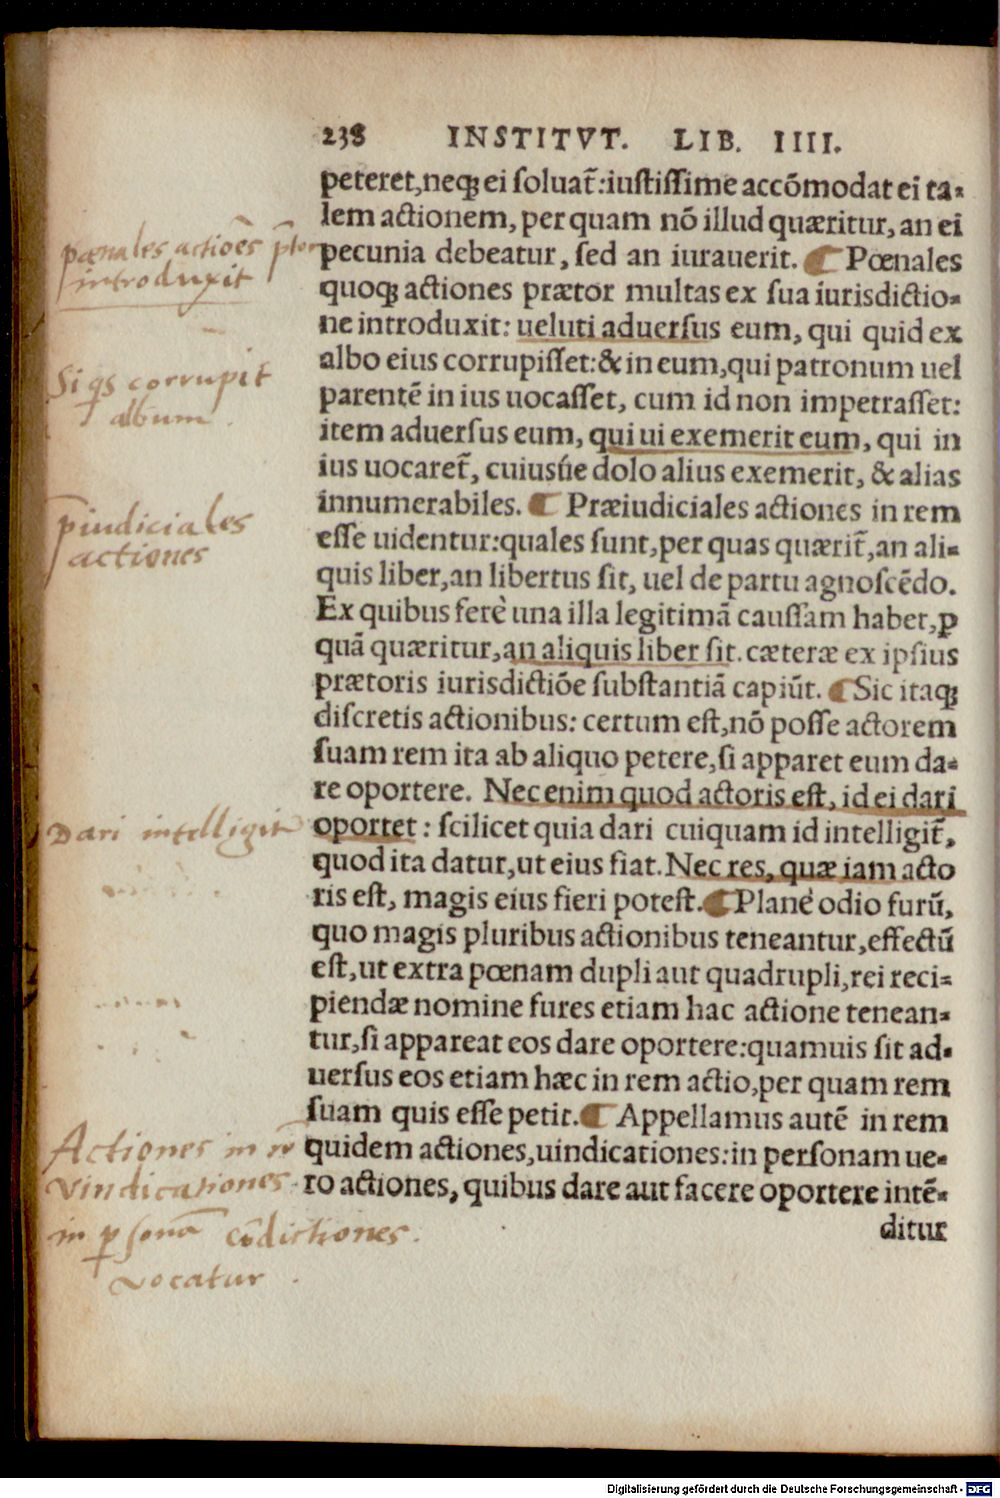 238 INSTITVT. LIB. IIII.
peteret,neqꝫ ei soluat̃:iustissime accõmodat ei ta-
lem actionem, per quam nõ illud quæritur, an ei
pecunia debeatur, sed an iurauerit. ¶ Pœnales
quoqꝫ actiones prætor multas ex sua iurisdictio-
ne introduxit: ueluti aduersus eum, qui quid ex
albo eius corrupisset:& in eum,qui patronum uel
parentẽ in ius uocasset, cum id non impetrasset:
item aduersus eum, qui ui exemerit eum, qui in
ius uocaret̃, cuiusúe dolo alius exemerit, & alias
innumerabiles. ¶ Præiudiciales actiones in rem
esse uidentur:quales sunt,per quas quærit̃,an ali-
quis liber,an libertus sit, uel de partu agnoscẽdo.
Ex quibus ferè una illa legitimã caussam habet,ꝑ
quã quæritur,an aliquis liber sit. cæteræ ex ipsius
prætoris iurisdictiõe substantiã capiũt. ¶ Sic itaqꝫ
discretis actionibus: certum est,nõ posse actorem
suam rem ita ab aliquo petere,si apparet eum da-
re oportere. Nec enim quod actoris est, id ei dari
oportet : scilicet quia dari cuiquam id intelligit̃,
quod ita datur,ut eius fiat. Nec res, quæ iam acto
ris est, magis eius fieri potest. ¶ Planè odio furũ,
quo magis pluribus actionibus teneantur,effectũ
est,ut extra pœnam dupli aut quadrupli,rei reci-
piendæ nomine fures etiam hac actione tenean-
tur,si appareat eos dare oportere:quamuis sit ad-
uersus eos etiam hæc in rem actio,per quam rem
suam quis esse petit. ¶ Appellamus autẽ in rem
quidem actiones,uindicationes:in personam ue-
ro actiones, quibus dare aut facere oportere intẽ-
ditur
pœnales actiões p̃tor
introduxit
Si qs corrupit
album.
p̃iudiciales
actiones
Dari intelligit
Actiones in rẽ
vindicationes.
in ꝑsonã cõdictiones.
vocatur.
Digitalisierung gefördert durch die Deutsche Forschungsgemeinschaft - DFG